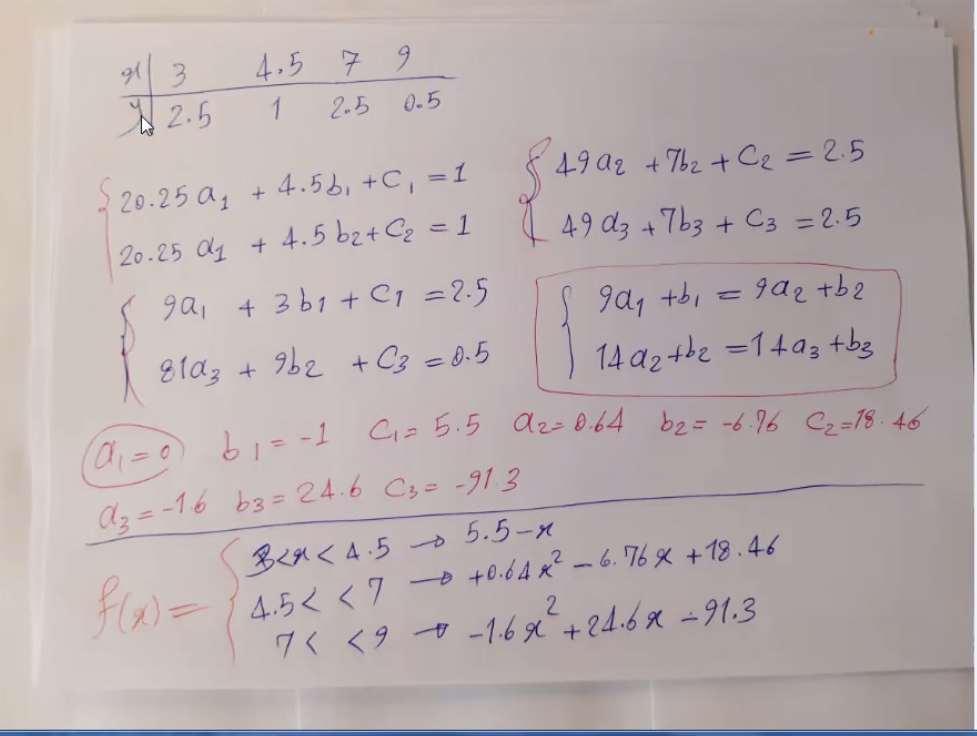 x | 3 4.5 7 9
y | 2.5 1 2.5 0.5
20.25 a₁ + 4.5b₁ + C₁ = 1
20.25 a₁ + 4.5 b₂ + C₂ = 1
49a₂ + 7b₂ + C₂ = 2.5
49a₃ + 7b₃ + C₃ = 2.5
9a₁ + 3b₁ + C₁ = 2.5
81a₃ + 9b₂ + C₃ = 0.5
9a₁ + b₁ = 9a₂ + b₂
14a₂ + b₂ = 14a₃ + b₃
a₁ = 0 b₁ = -1 C₁ = 5.5 a₂ = 0.64 b₂ = -6.76 C₂ = 18.46
a₃ = -1.6 b₃ = 24.6 C₃ = -91.3
f(x) =
3 < x < 4.5 → 5.5 - x
4.5 < < 7 → +0.64x² - 6.76x + 18.46
7 < < 9 → -1.6x² + 24.6x - 91.3